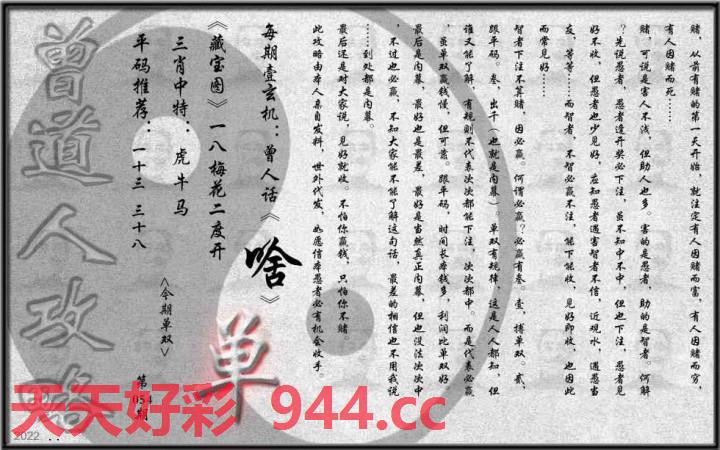 赌，从前有赌的第一天开始，就注定有人因赌而富，有人因赌而穷，
有人因赌而死……
赌，可说是害人不浅，但助人也多。害的是愚者，助的是智者。何解
？先说愚者，愚者逢开奖必下注，虽不知中不中，但也下注，愚者见
好不收，但愚者也少见好，应知愚者遇害智者不信，近观水，遇愚当
友，等等……而智者，不智必赢不注，能下能收，见好即收，也因此
而常见好……
智者下注不算赌，因必赢。何谓必赢？必赢有叁，壹，搏单双。贰，
跟平码。叁，出千（也就是内幕）。单双有规律，这是人人都知，但
谁又能了解，有规则不代表次次都能下注，次次都中。而是代表必赢
，虽单双赢钱慢，但可靠。跟平码，时间长本钱多，利润比单双好
最后是内幕，最好也是最差，最好是当然真正内幕，但也没法次次中
，不过也必赢，不知大家能不能了解这句话，最差的相信也不用我说
……到处都是内幕。
最后还是对大家说，见好就收。不怕你赢钱，只怕你不赌。
此攻略由本人亲自发料，世外代发，如愿信本愚者必有机会收手
每期壹玄机：曾人话《啥》
《藏宝图》一八梅花二度开
三肖中特：虎牛马
平码推荐：一十三 三十八
<今期单双>
单
第054期
曾道人攻略
天天好彩 944.cc
2022 . .